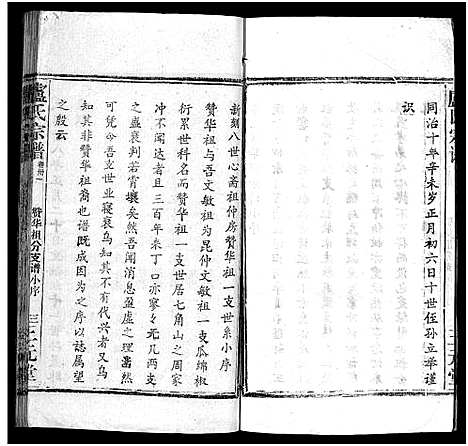 同治十年辛未岁正月初六日十世侄孙立举谨
识
卢氏宗谱
三元堂
新刻八世心斋祖仲房赞华祖一支世系小序
赞华祖与吾文敏祖为昆仲文敏祖一支瓜绵椒
衍累世科名而赞华祖一支世居七角山之周家
冲不闻达者且三百年来丁口亦寥々元凡两支
之盛衰判若霄壤矣然吾闻消息盈虚之理凿然
可凭今吾支世业凌夷矣乌知其不有代兴者又乌
知其非赞华祖裔也谱既成因为之序以志属望
之殷云
卢氏宗谱
卷卅一
赞华祖分支谱小序
三元堂